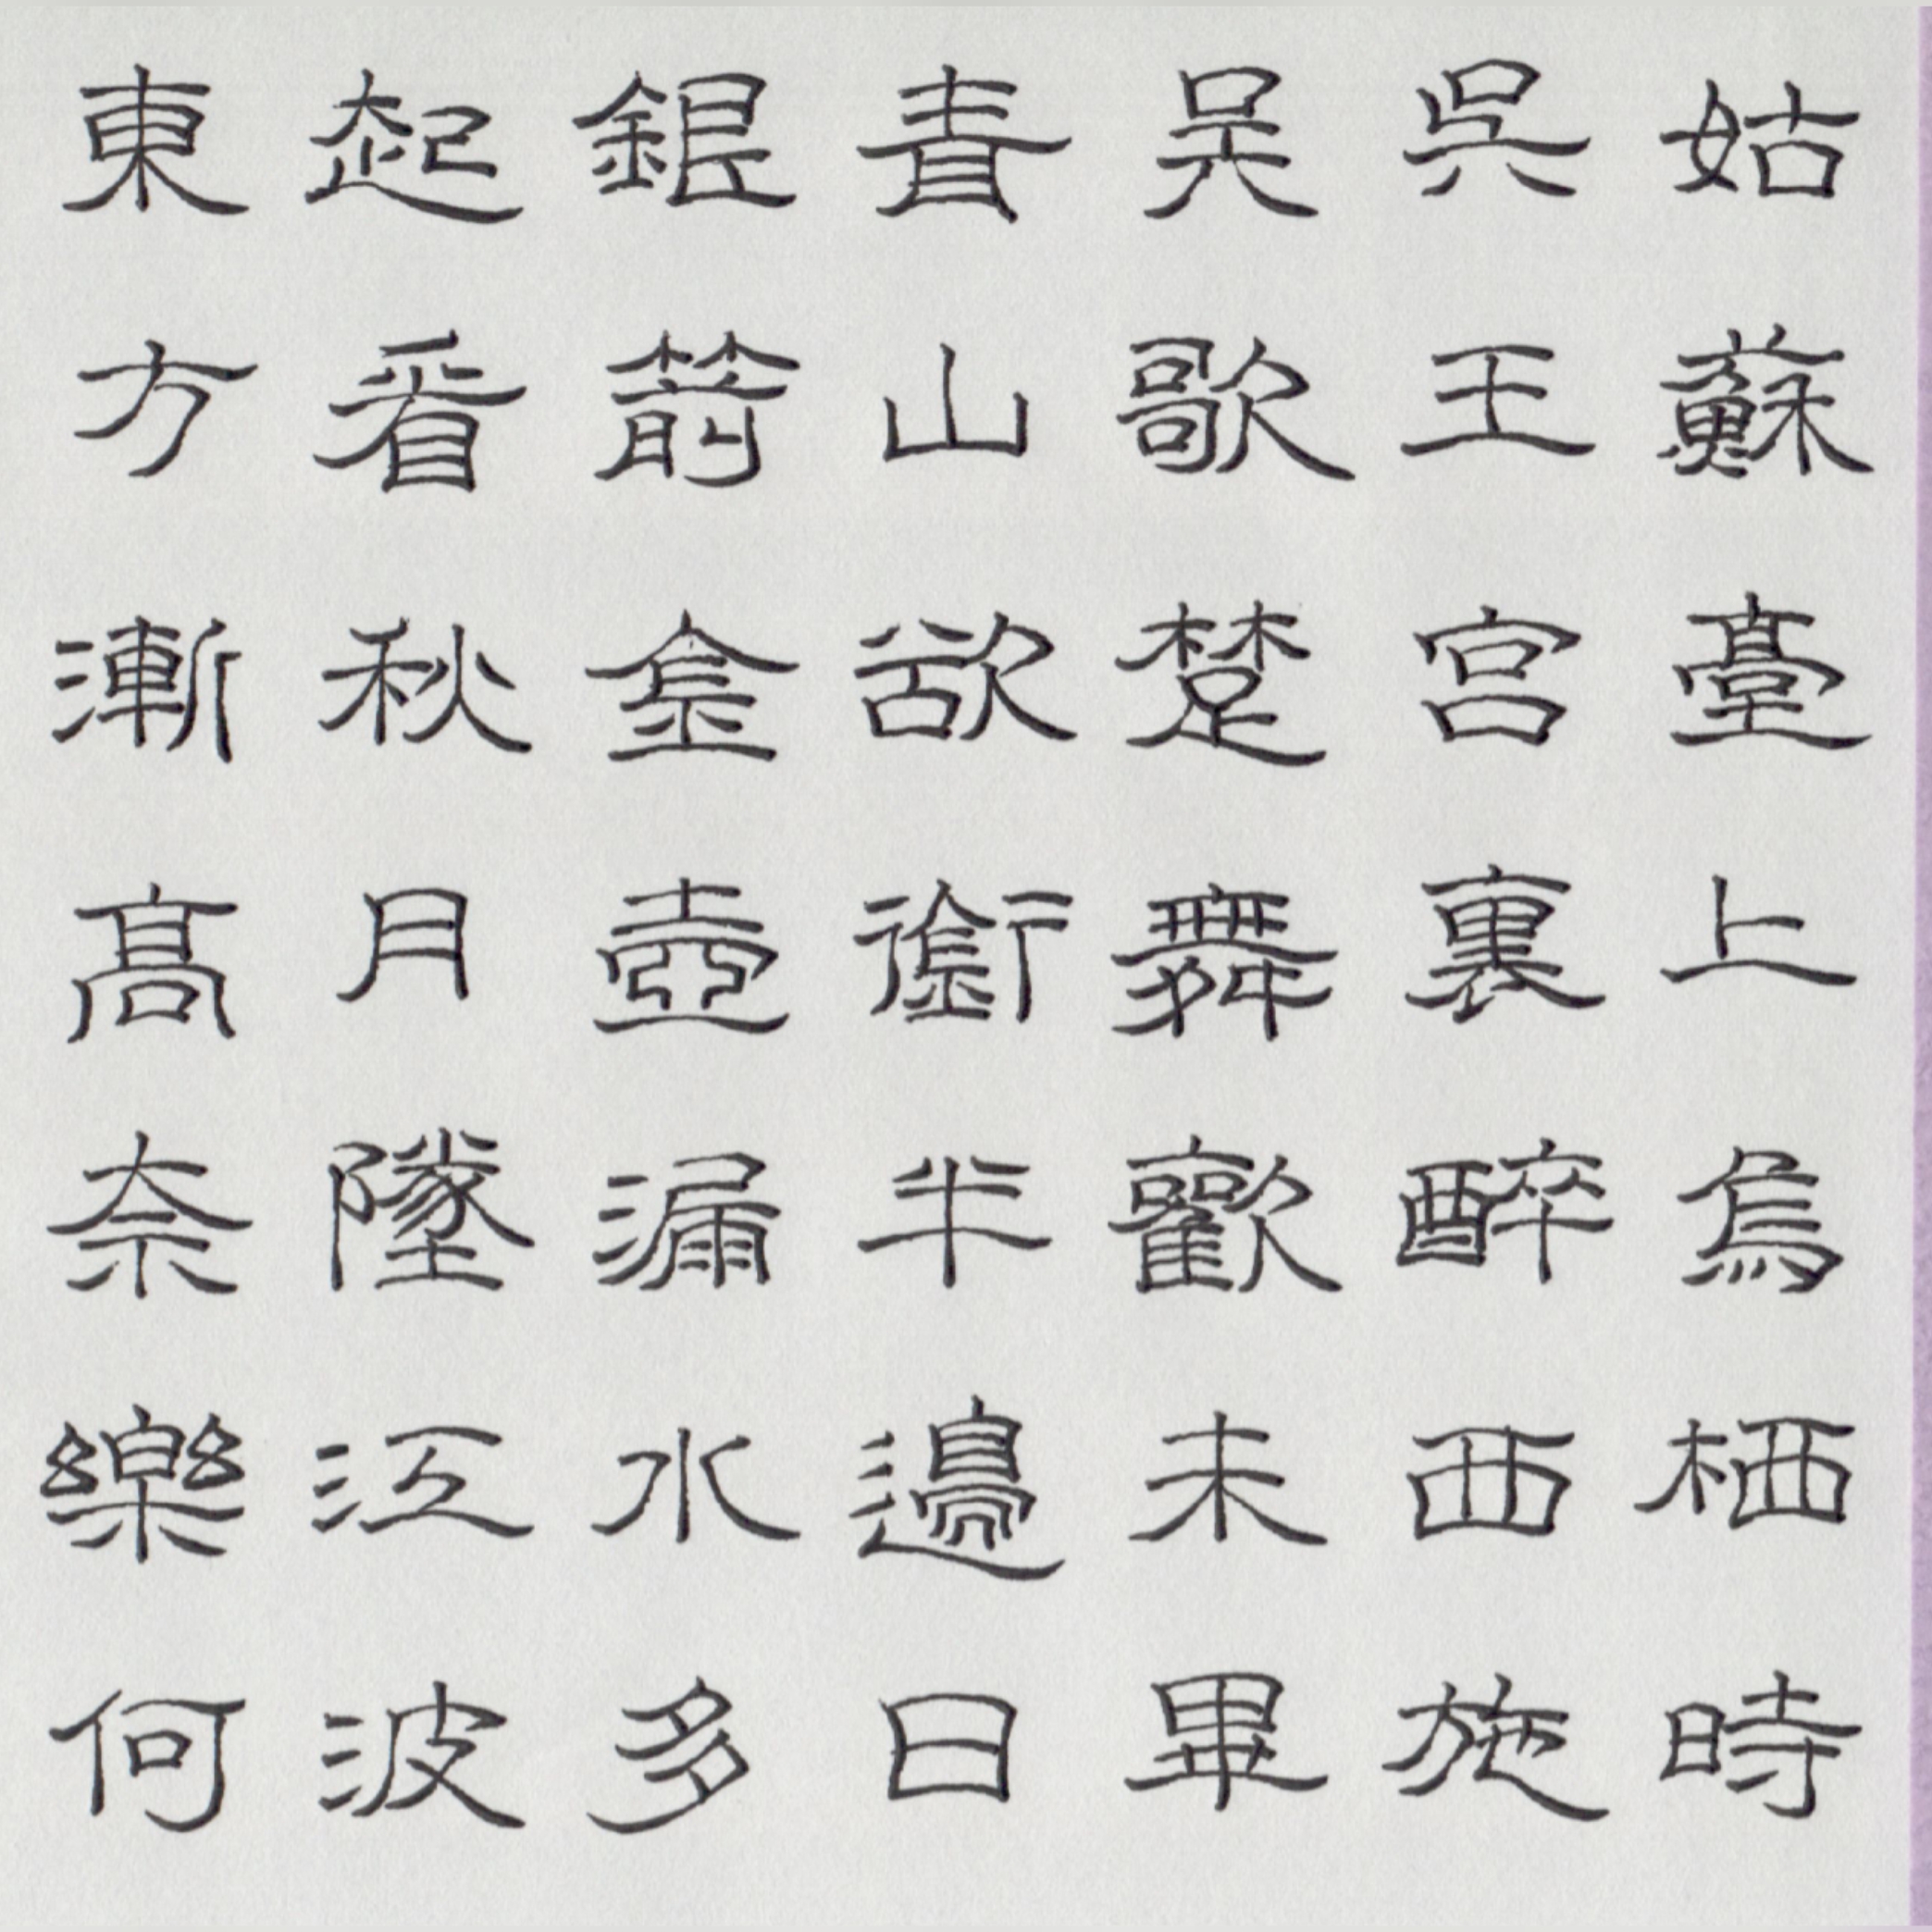 姑蘇臺上烏栖時
吳王宮裏醉西施
吴歌楚舞歡未畢
青山欲銜半邊日
銀箭金壺漏水多
起看秋月墜江波
東方漸高奈樂何